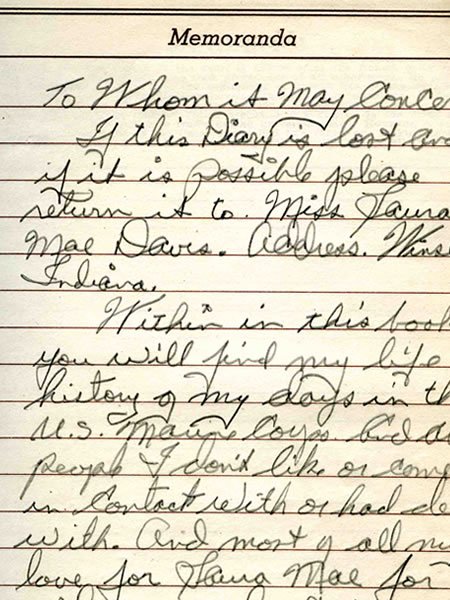 Memoranda
To Whom it May Conce
If this Diary is lost and
if it is possible please
return it to. Miss Laura
Mae Davis. Address. Wins
Indiana.
Within in this book
you will find my life
history of my days in th
U.S. Marine Corps. And a
people I don't like or come
in Contact with or had de
with. And most of all m
love for Laura Mae for